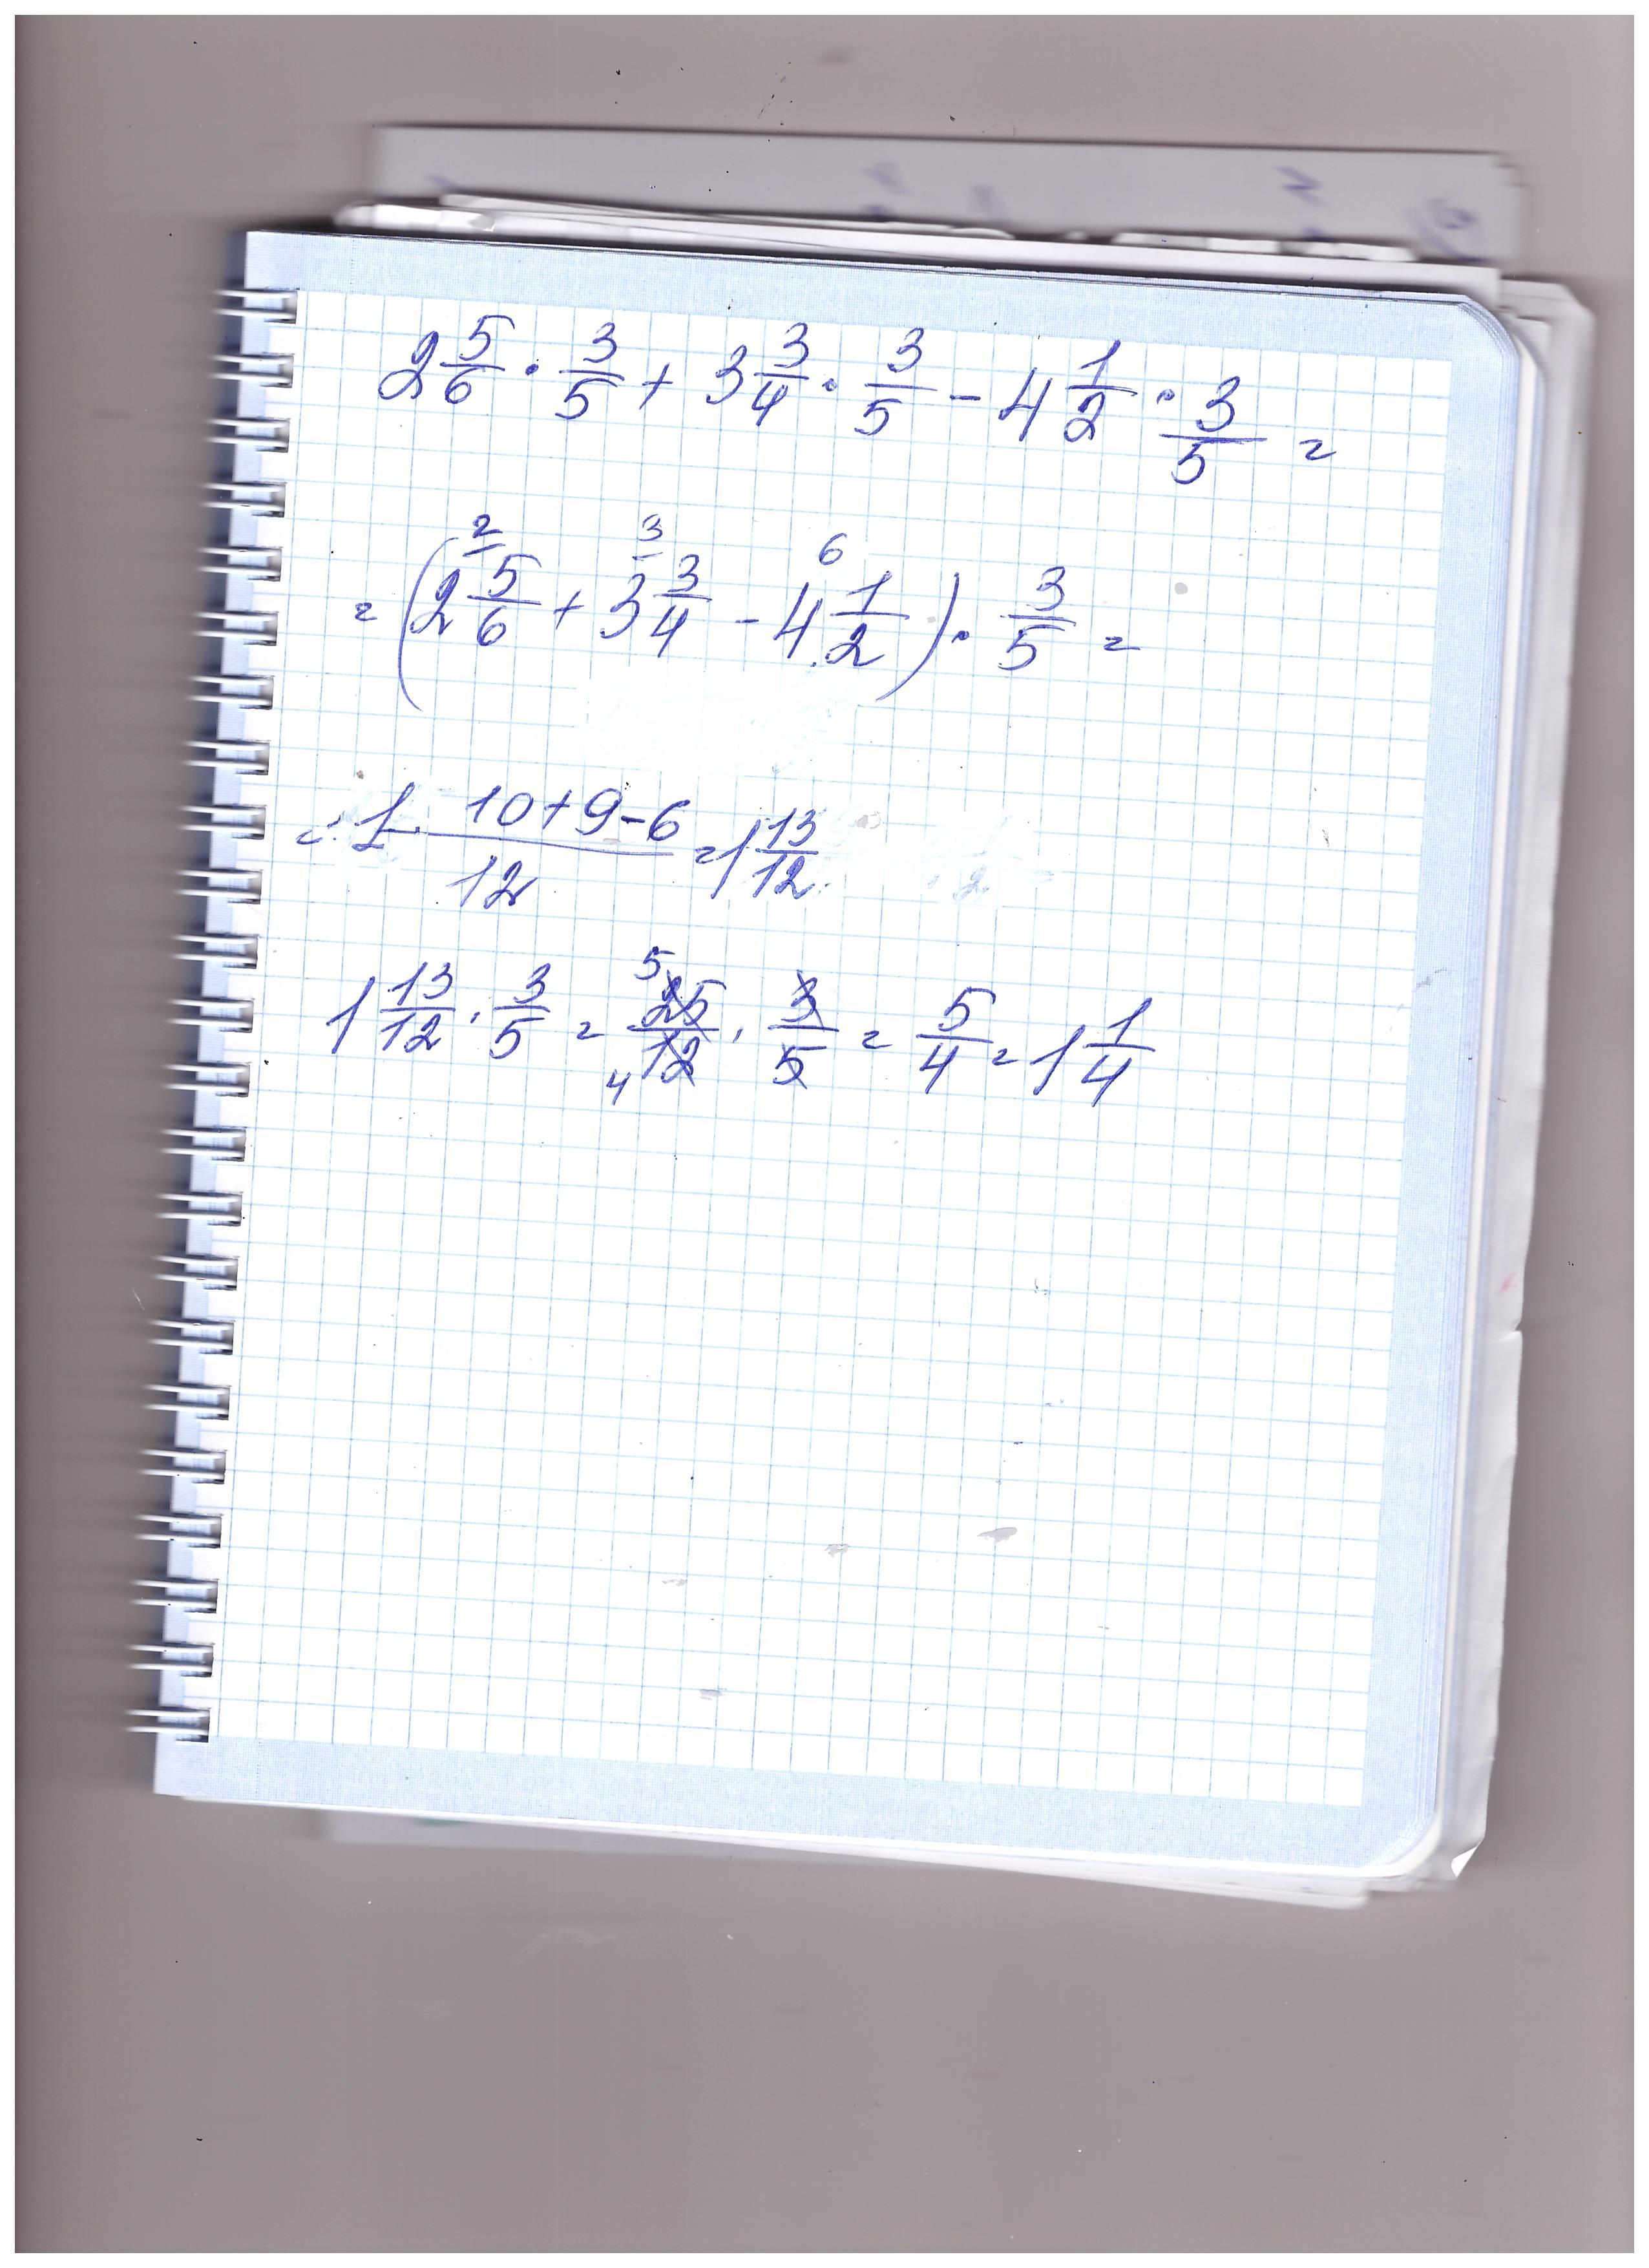 2 5/6 · 3/5 + 3 3/4 · 3/5 - 4 1/2 · 3/5 =
= (2 5/6 + 3 3/4 - 4 1/2) · 3/5 =
2 3 6
= 1 (10+9-6)/12 = 1 13/12
1 13/12 · 3/5 = 25/12 · 3/5 = 5/4 = 1 1/4
5
4